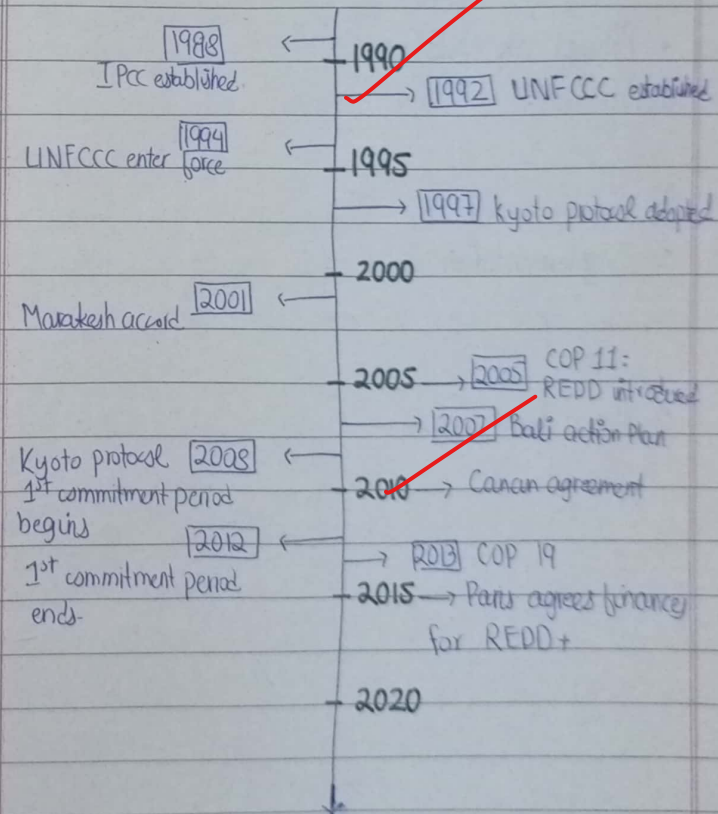 1988
IPCC established.
1990
1992 UNFCCC established
1994
UNFCCC enter force
1995
1997 Kyoto protocol adopted
2000
2001
Marakesh accord
2005 2005 COP 11:
REDD introdued
2007 Bali action Plan
Kyoto protocol 2008
1st commitment period
begins
2010 Cancan agreement
2012
1st commitment period
ends.
2013 COP 19
2015 Paris agrees finances
for REDD+
2020